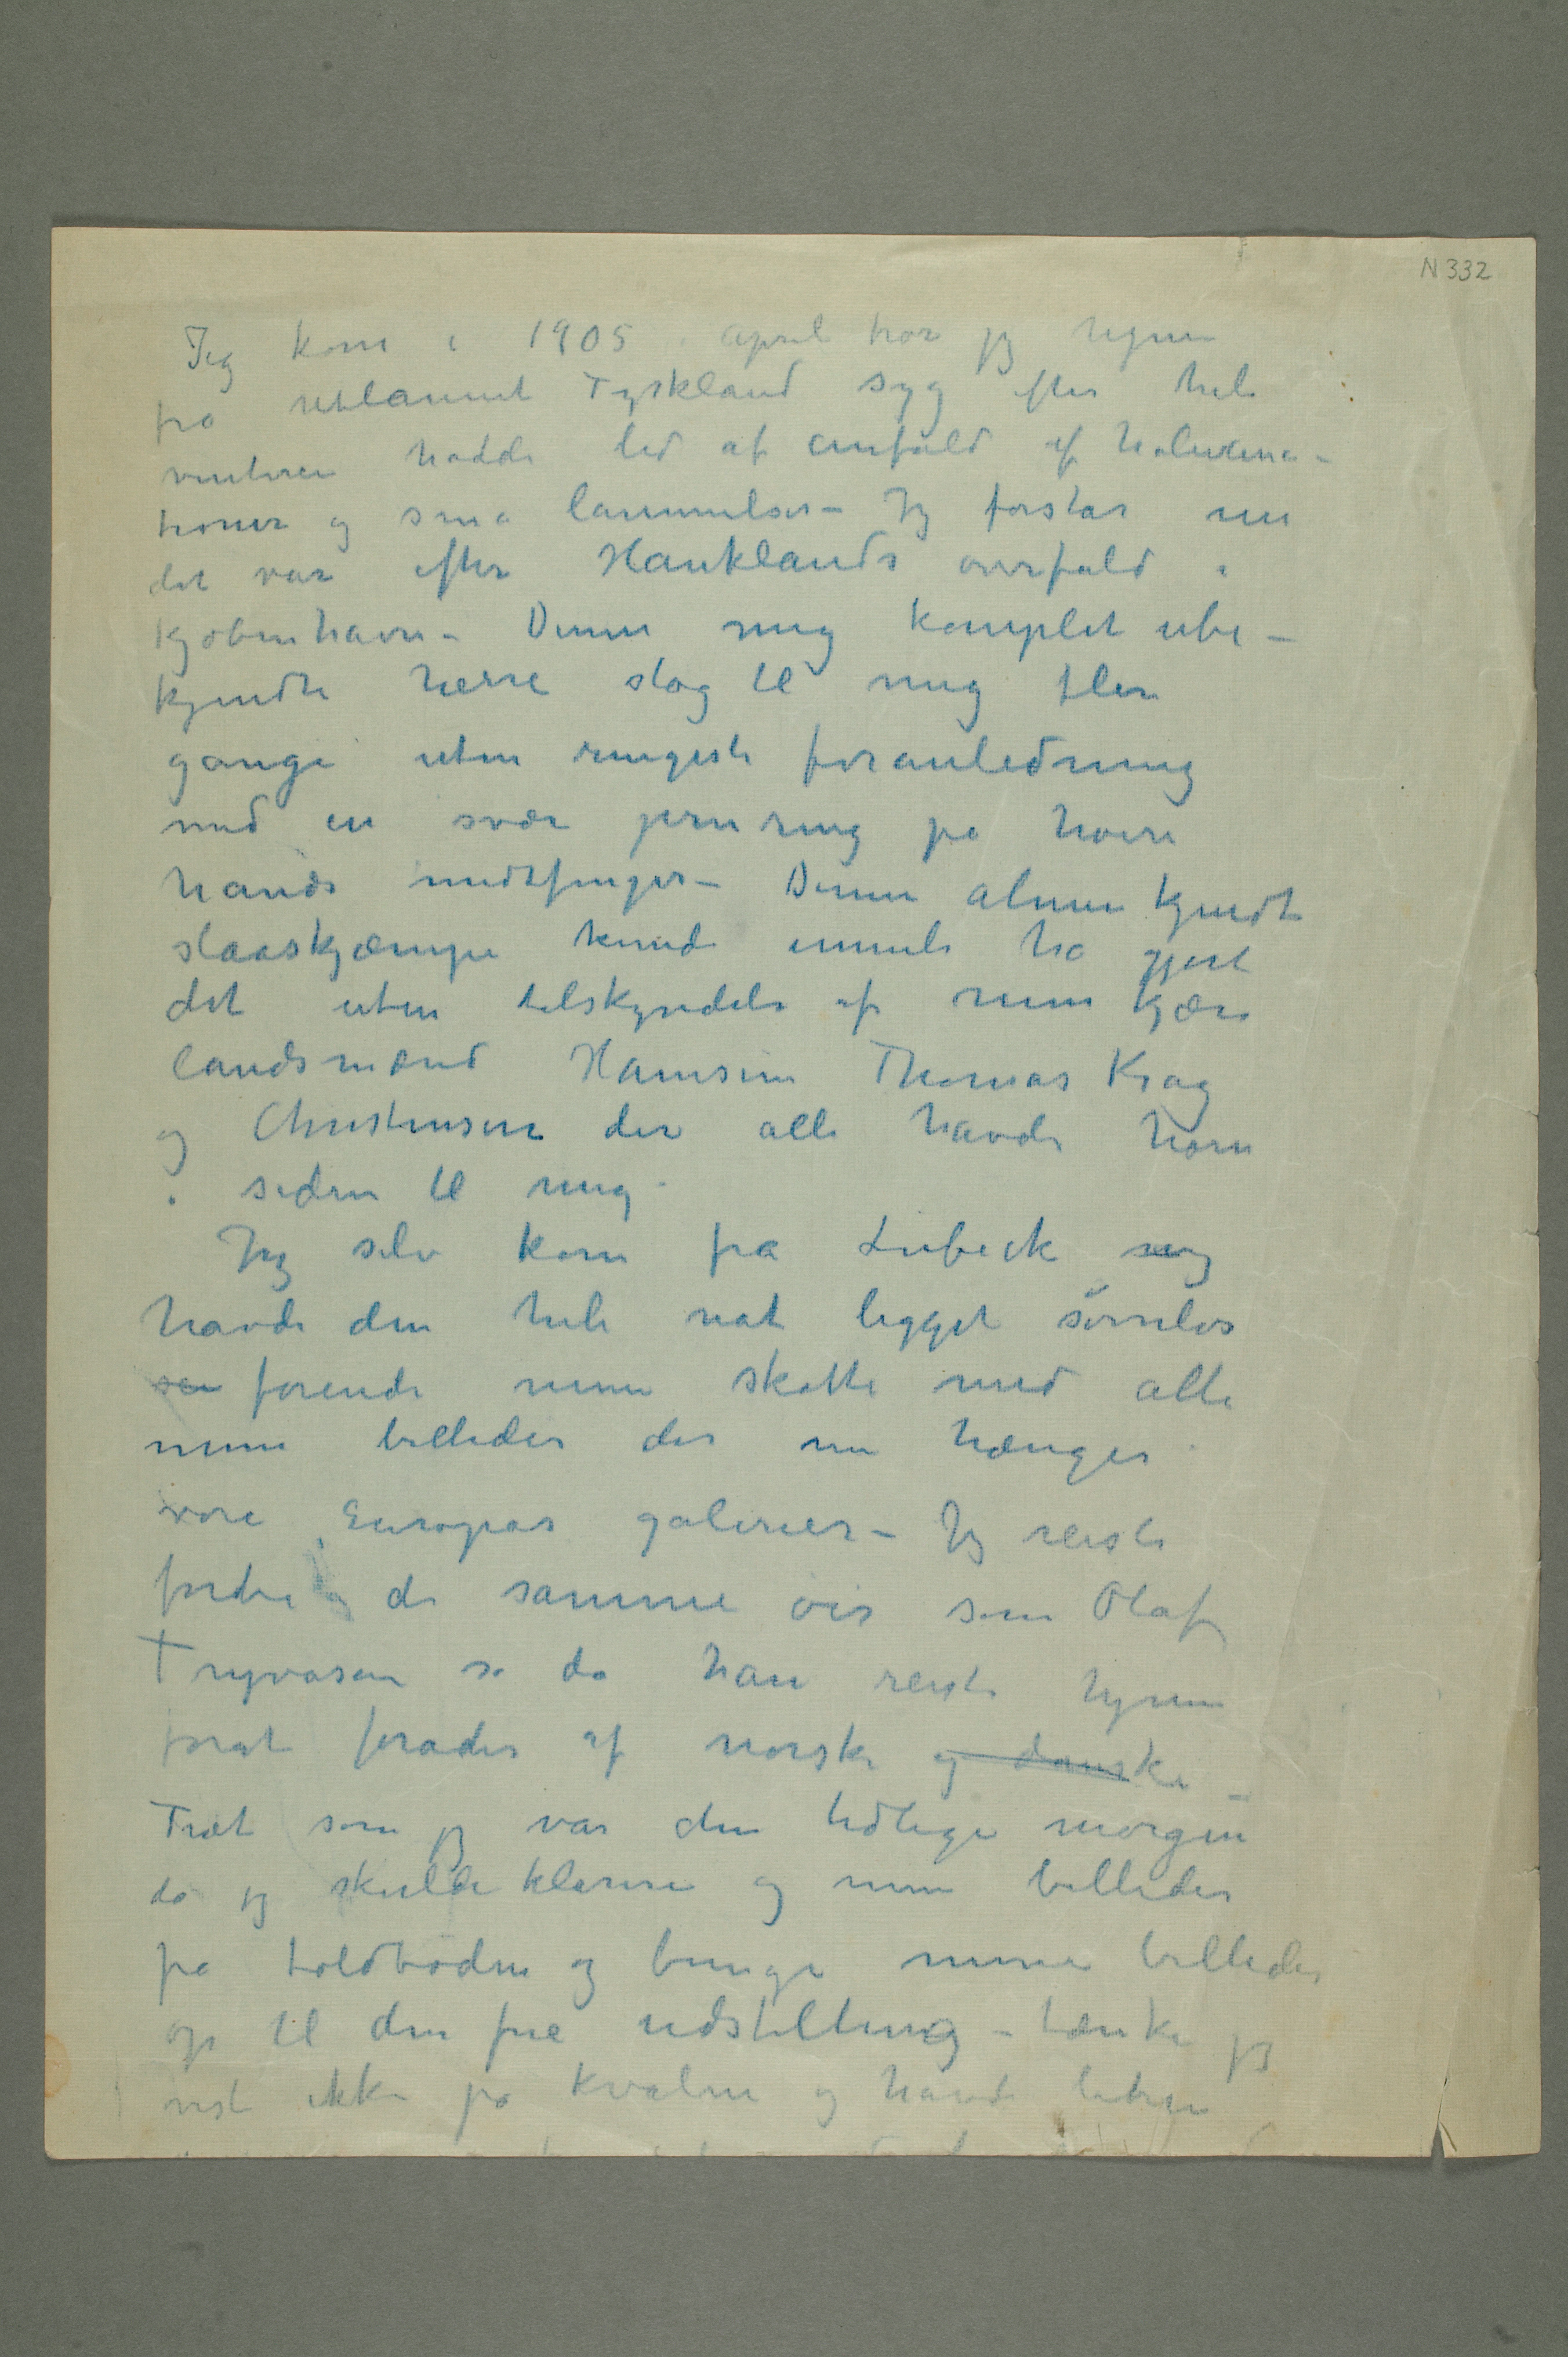 N 332
Jeg kom i 1905 i april tror jeg hjem
fra utlannet Tyskland syg efter hele
vinteren hadde led af anfald af halucina–
tioner og små lammelser – Jeg forstår nu
det var efter Hauklands overfald i
Kjøbenhavn – Denne mig komplet ube–
kjendte herre slog til mig flere
gange uten ringeste foranledning
med en svær jernring på høire
hånds midtfinger – Denne almen kjendte
slaaskjæmpe kunde umuli ha gjort
det uten tilskyndelse af mine kjære
landsmænd Hamsun Thomas Krag
og Christensen der alle havde horn
i siden til mig
Jeg selv kom fra Lübeck
havde den hele nat ligget søvnløs
førende mine skatte med alle
mine billeder der nu hænger i
vore Europas galerier – Jeg reiste
forbi de samme øer som Olaf
Trygvason da han reiste hjem
forat forrådes af norske og danske –
Træt som jeg var den tidlige morgen
da jeg skulde klarere og mine billeder
på toldboden og bringe mine billeder
op til den frie udstilling – tænkte jeg
vist ikke på kvalme og havde